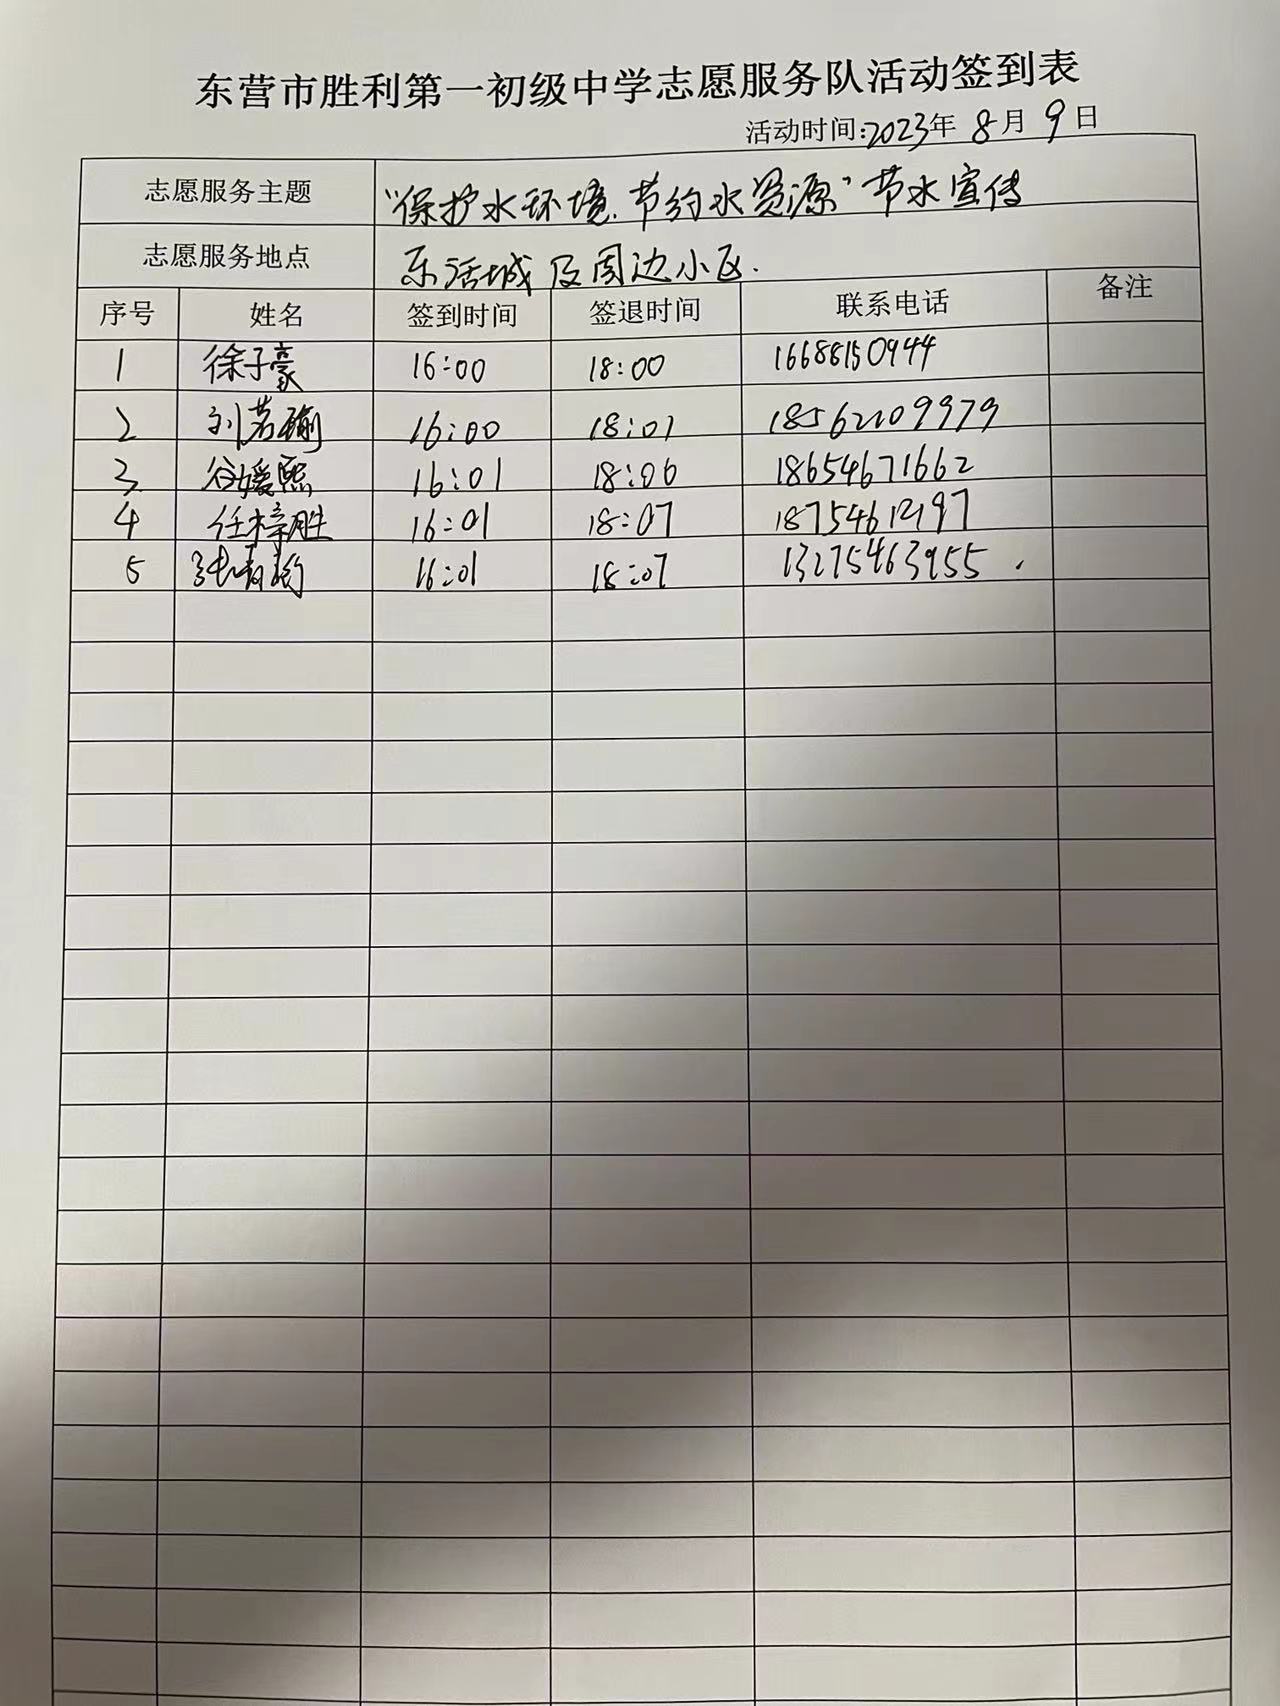 东营市胜利第一初级中学志愿服务队活动签到表
活动时间:2023年 8月 9日
志愿服务主题 “保护水环境.节约水资源”节水宣传
志愿服务地点 乐活城及周边小区.
序号 姓名 签到时间 签退时间 联系电话 备注
1 徐子豪 16:00 18:00 16688150944
2 刘若瑜 16:00 18:01 18562109979
3 谷媛熙 16:01 18:06 18654671662
4 任梓胜 16:01 18:07 18754612197
5 16:01 18:07 13275463955